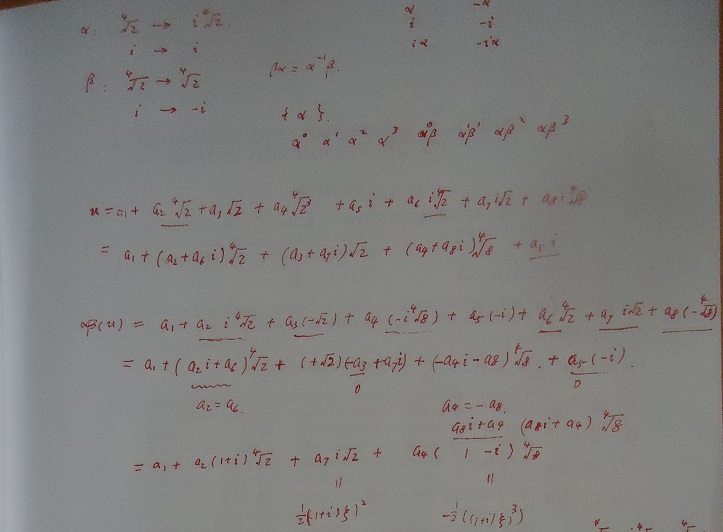 α: ∜2 → i∜2
i → i
β: ∜2 → ∜2
i → -i
α -α
i -i
iα -iα
βα = α⁻¹β.
{α}.
α⁰ α¹ α² α³ α⁰β α¹β¹ αβ² αβ³
u = a₁ + a₂∜2 + a₃√2 + a₄∜2³ + a₅i + a₆i∜2 + a₇i√2 + a₈i∜8
= a₁ + (a₂+a₆i)∜2 + (a₃+a₇i)√2 + (a₄+a₈i)∜8 + a₅i
αβ(u) = a₁ + a₂ i∜2 + a₃(-√2) + a₄(-i∜8) + a₅(-i) + a₆∜2 + a₇ i√2 + a₈(-∜8)
= a₁ + (a₂i+a₆)∜2 + (+√2)(-a₃+a₇i) + (-a₄i-a₈)∜8 + a₅(-i).
0 0
a₂=a₆. a₄=-a₈.
a₈i+a₄ (a₈i+a₄)∜8
= a₁ + a₂(1+i)∜2 + a₇i√2 + a₄(1-i)∜8
|| ||
½((1+i)ξ)² -½((1+i)ξ)³)